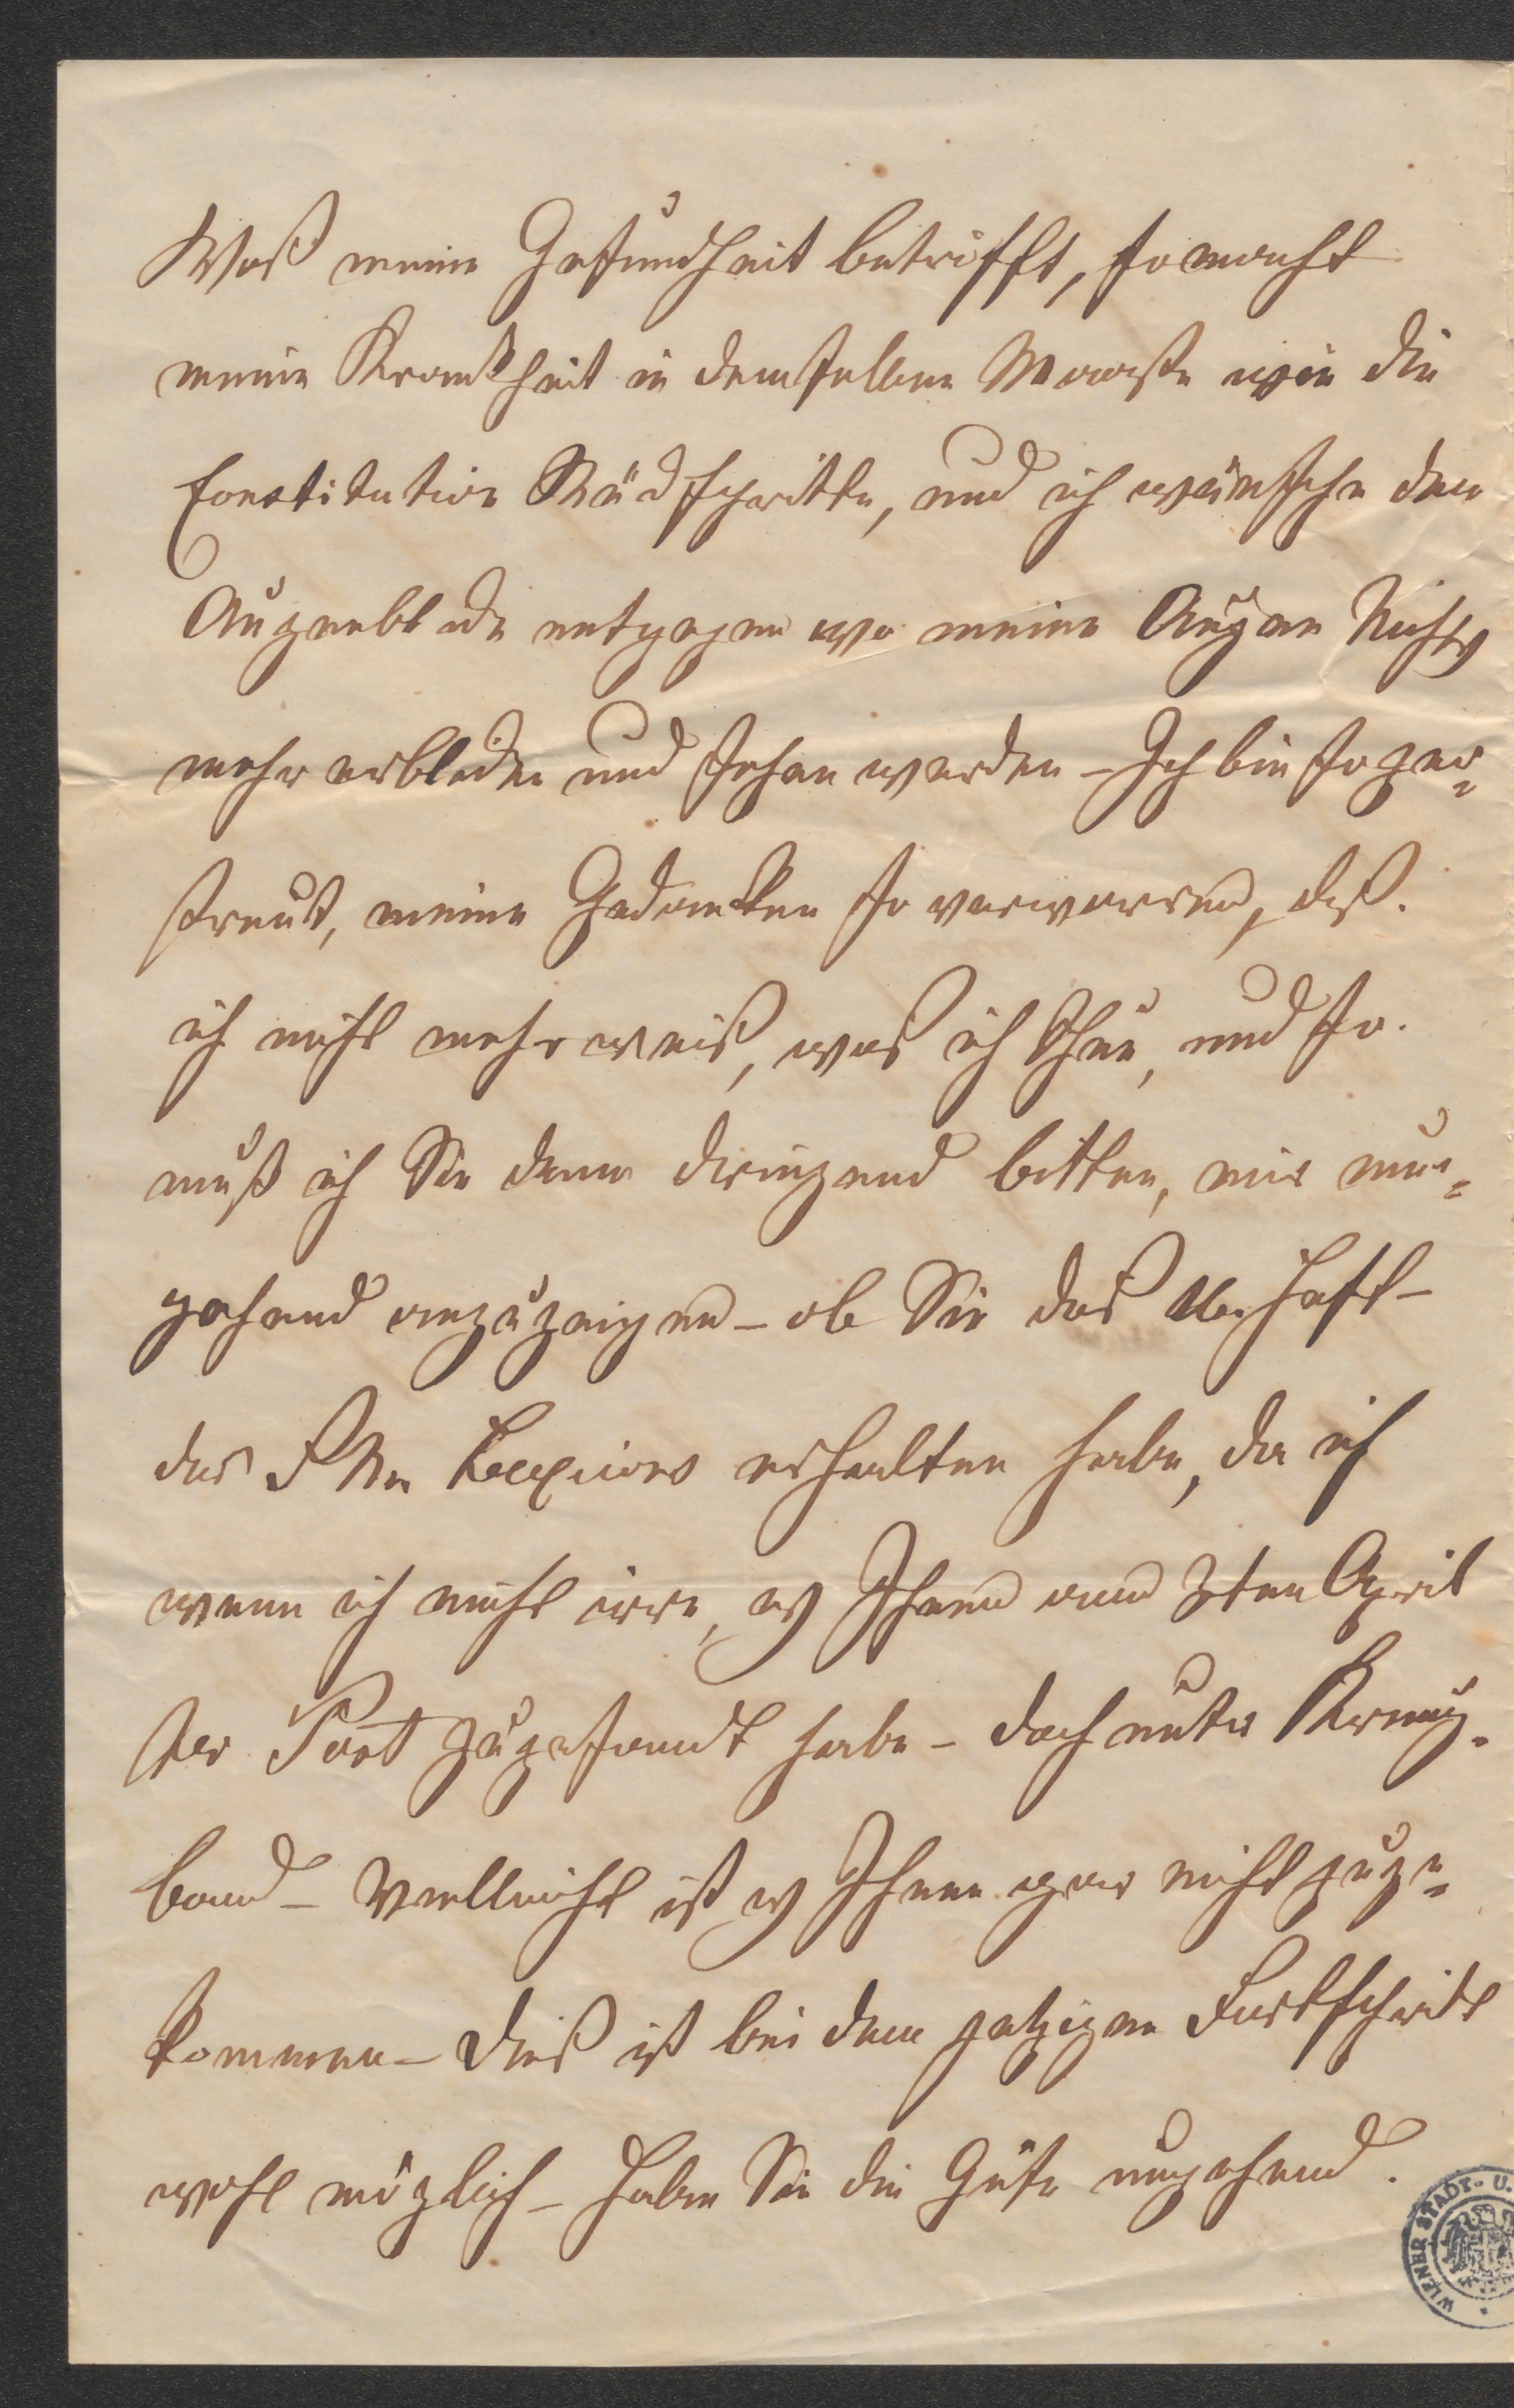 Waß meine Gesundheit betrifft, so macht
meine Krankheit in demselben Maaße wie die
Constitution Rückschritte, und ich wünsche den
Augenblick entgegen wo meine Augen Nichts
mehr erblicken und sehen werden – Ich bin so zer=
streut, meine Gedanken so verworren, daß
ich nicht mehr weiß, was ich thue, und so
muß ich Sie denn dringend bitten, mir um=
gehend anzuzeigen – ob Sie das Heft –
des erhalten habe, da ich
wenn ich nicht irre, es Ihnen am 3ten April
per Post zugesandt habe – doch unter Kreuz=
band – Vielleicht ist es Ihnen gar nicht zuge=
kommen – dieß ist bei dem jetzigen Fortschritt
wohl möglich – haben Sie die Güte umgehend
WIENER STADT- U.